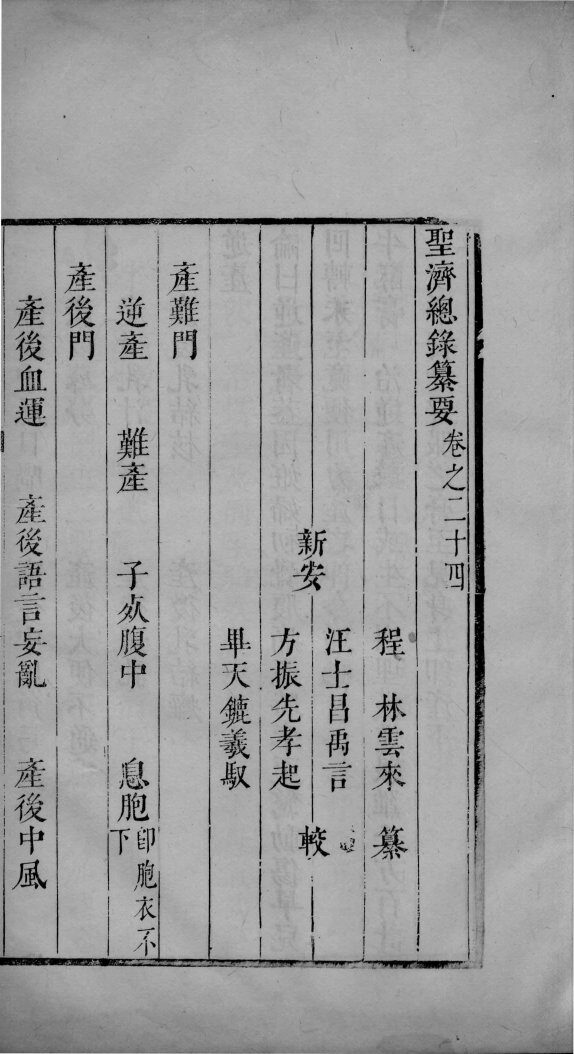 聖濟總錄纂要 卷之二十四
程 林雲來 纂
新安 汪士昌禹言 較
方振先孝起
畢天鑣羲馭
產難門
逆產 難產 子𣦸腹中 息胞 即胞衣不下
產後門
產後血運 產後語言妄亂 產後中風